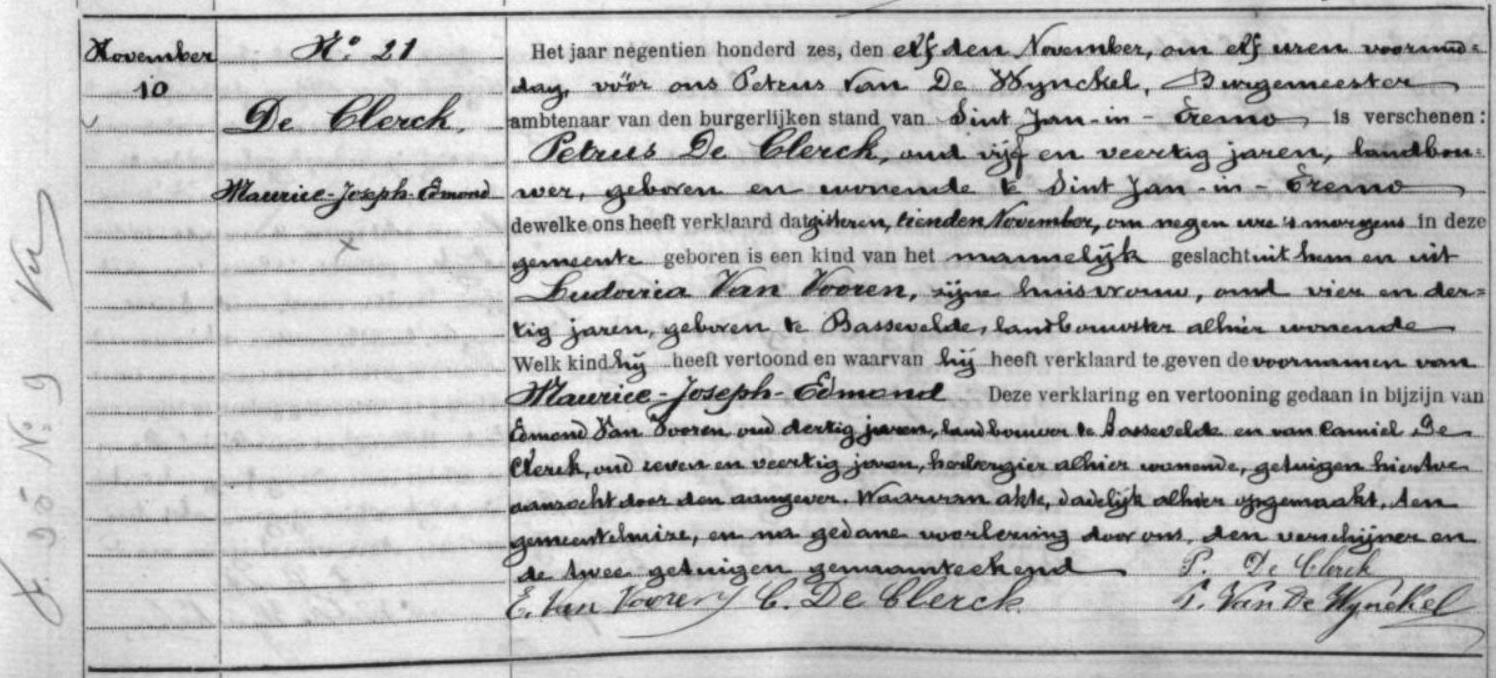 November
10
N.° 21
De Clerck,
Maurice-Joseph-Edmond
Het jaar negentien honderd zes, den elf den November, om elf uren voormid=
dag, vóór ons Petrus Van De Wynckel, Burgemeester
ambtenaar van den burgerlijken stand van Sint Jan-in-Eremo is verschenen:
Petrus De Clerck, oud vijf en veertig jaren, landbou=
wer, geboren en wonende te Sint Jan-in-Eremo
dewelke ons heeft verklaard dat gisteren, tienden November, om negen ure 's morgens in deze
gemeente geboren is een kind van het mannelijk geslacht uit hem en uit
Ludovica Van Vooren, zijne huisvrouw, oud vier en der=
tig jaren, geboren te Bassevelde, landbouwster alhier wonende
Welk kind hij heeft vertoond en waarvan hij heeft verklaard te geven de voornamen van
Maurice-Joseph-Edmond Deze verklaring en vertooning gedaan in bijzijn van
Edmond Van Vooren oud dertig jaren, landbouwer te Bassevelde en van Camiel De
Clerck, oud zeven en veertig jaren, herbergier alhier wonende, getuigen hiertoe
aanzocht door den aangever. Waarvan akte, dadelijk alhier opgemaakt, ten
gemeentehuize, en na gedane voorlezing door ons, den verschijner en
de twee getuigen genaamteekend P. De Clerck
E. Van Vooren C. De Clerck P. Van De Wynckel
N: 9